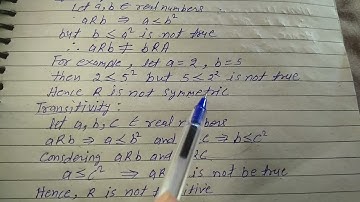 Let a,b ∈ real numbers
aRb ⇒ a≤b²
but b≤a² is not true
∴ aRb ≠ bRA
For example, let a=2, b=5
then 2≤5² but 5≤2² is not true
Hence R is not symmetric
Transitivity:
Let a,b,c ∈ real numbers
aRb ⇒ a≤b² and C ⇒ b≤c²
Constering aRb and C
a≤c² ⇒ aR is not be true
Hence, R is not itive